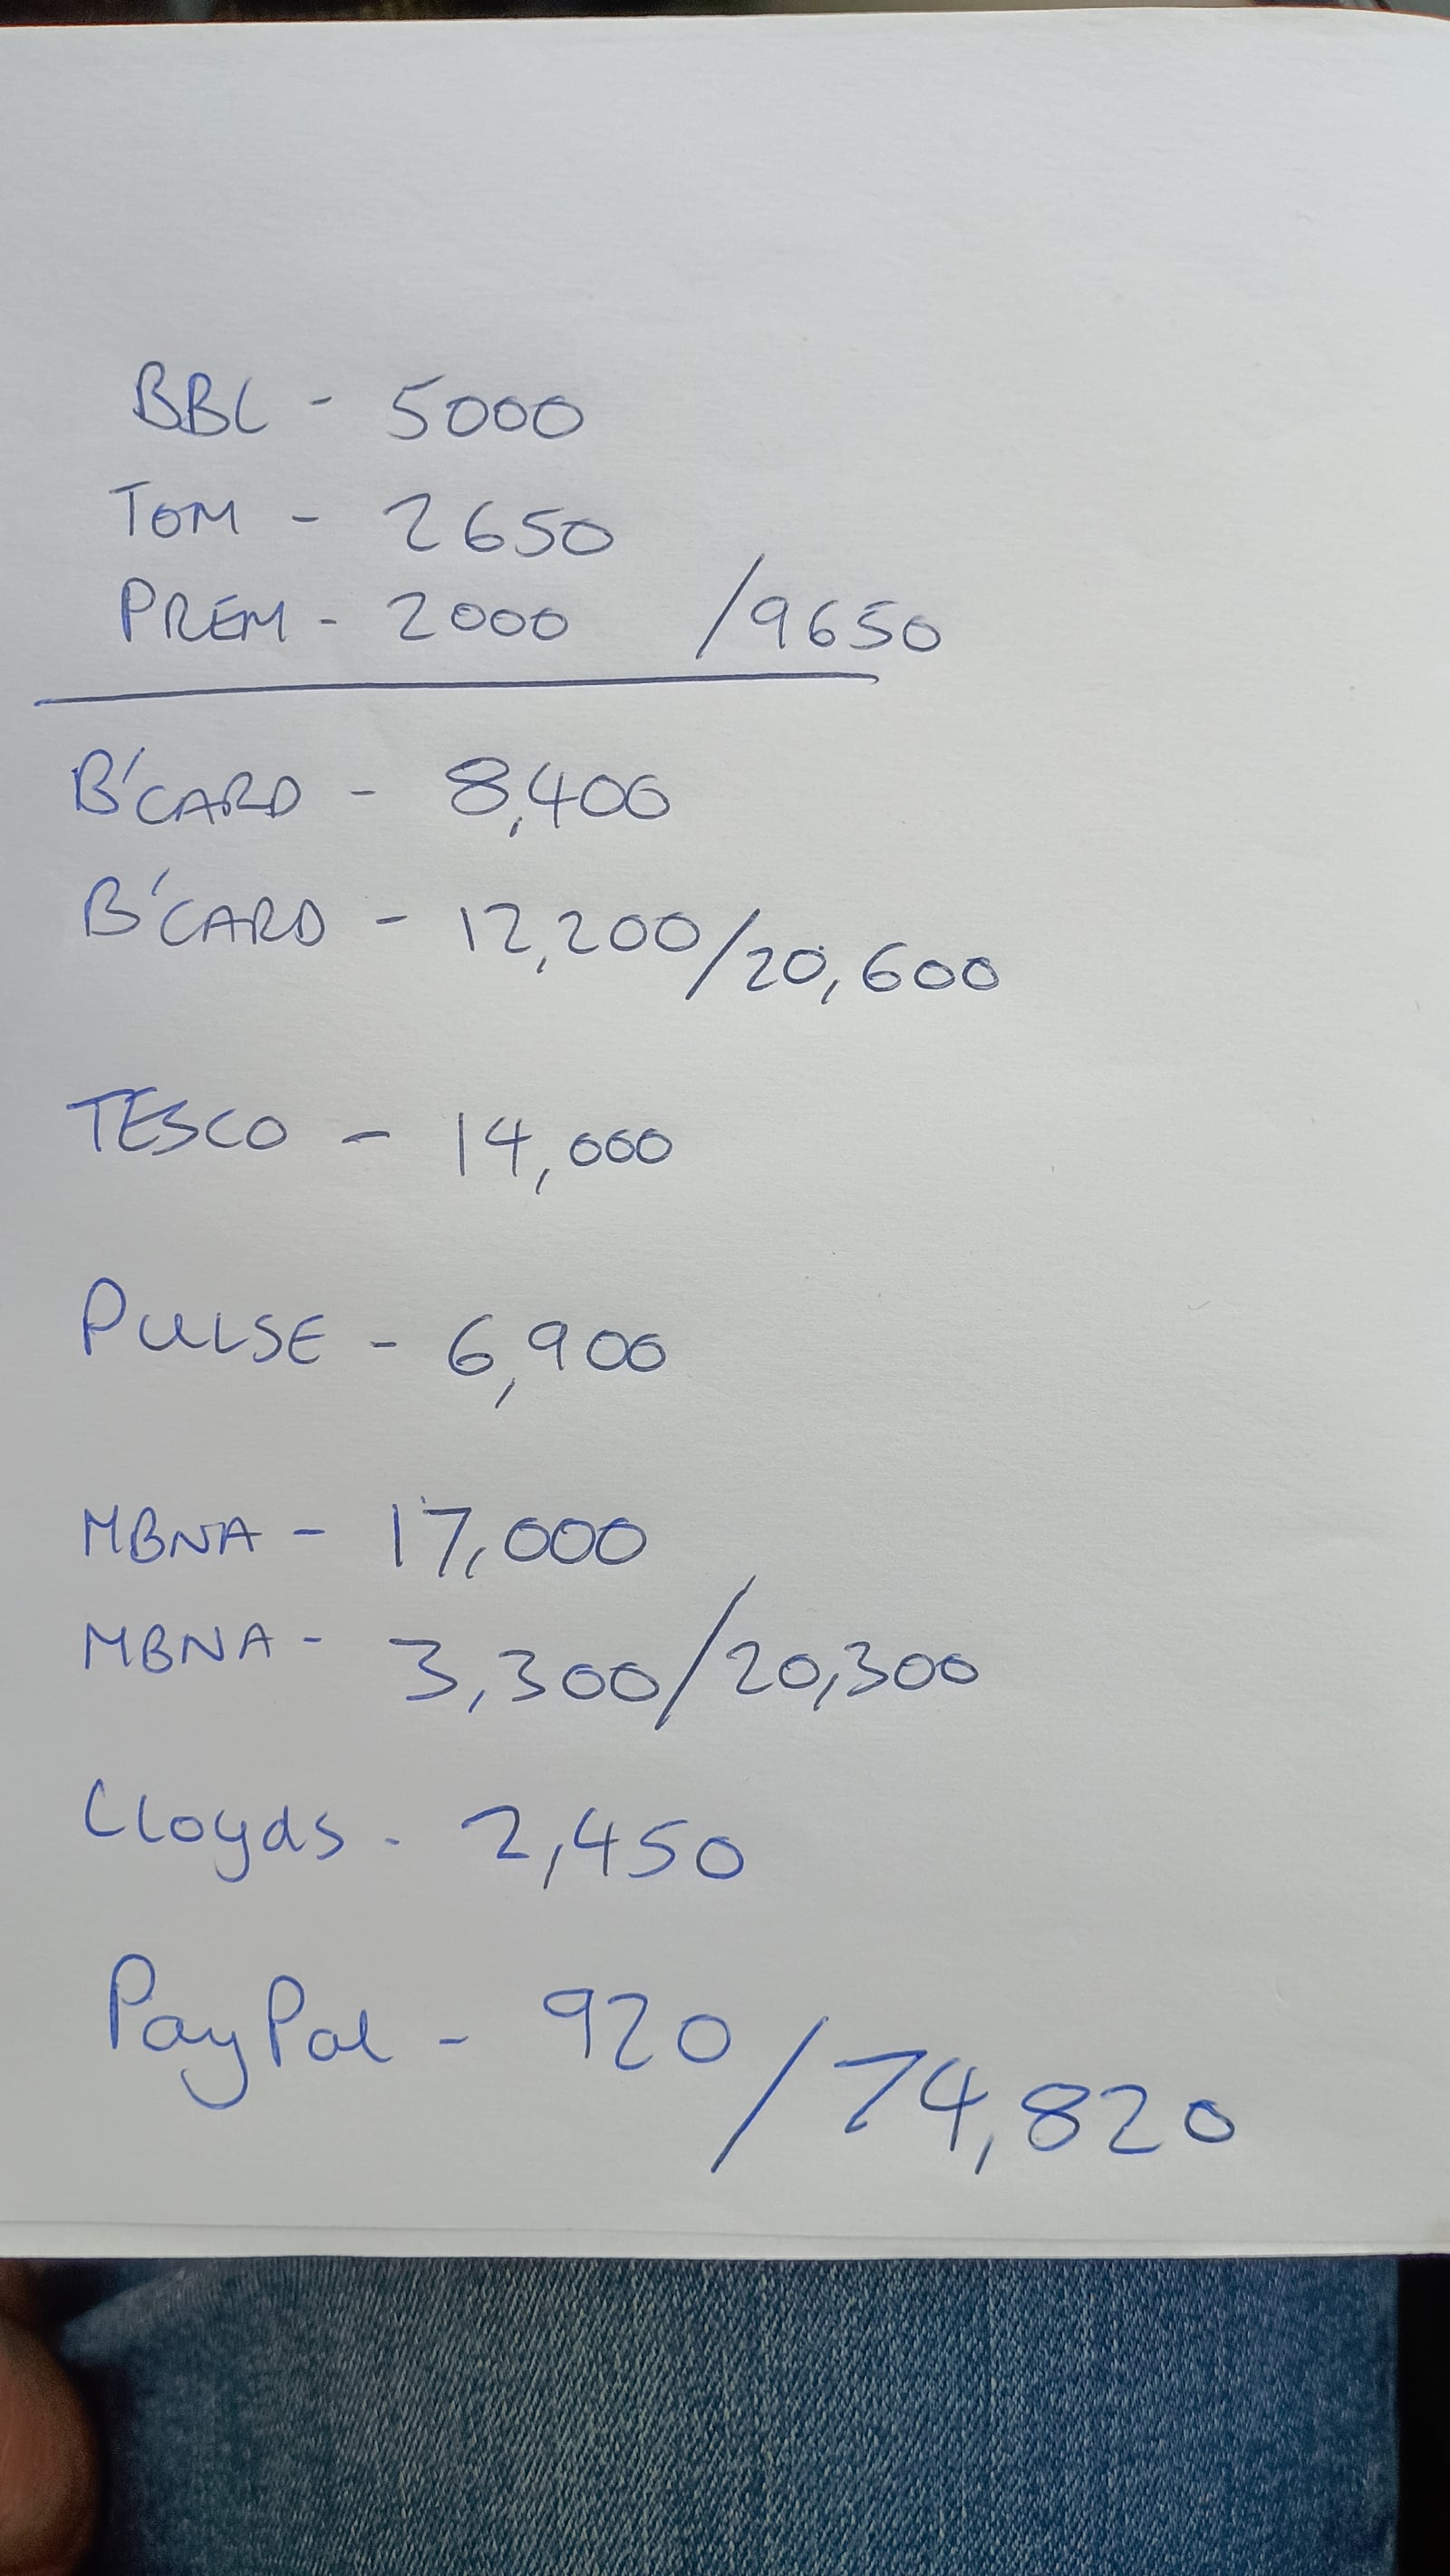 BBL - 5000
TOM - 2650
PREM - 2000 /9650
B'CARD - 8,400
B'CARD - 12,200/20,600
TESCO - 14,000
PULSE - 6,900
MBNA - 17,000
MBNA - 3,300/20,300
Lloyds - 2,450
PayPal - 920/74,820